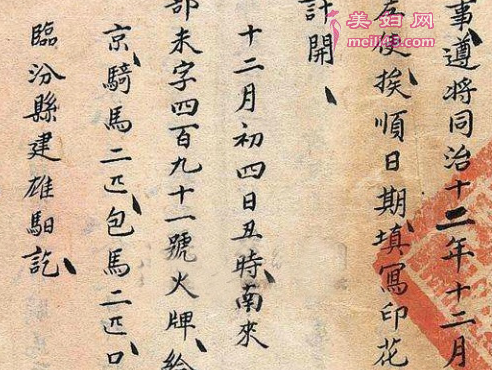 事遵將同治十二年十二月
使挨順日期填寫印花
計開
十二月初四日丑時南來
部未字四百九十一號火牌給
京騎馬二匹包馬二匹口
臨汾縣建雄馹訖
美妇网